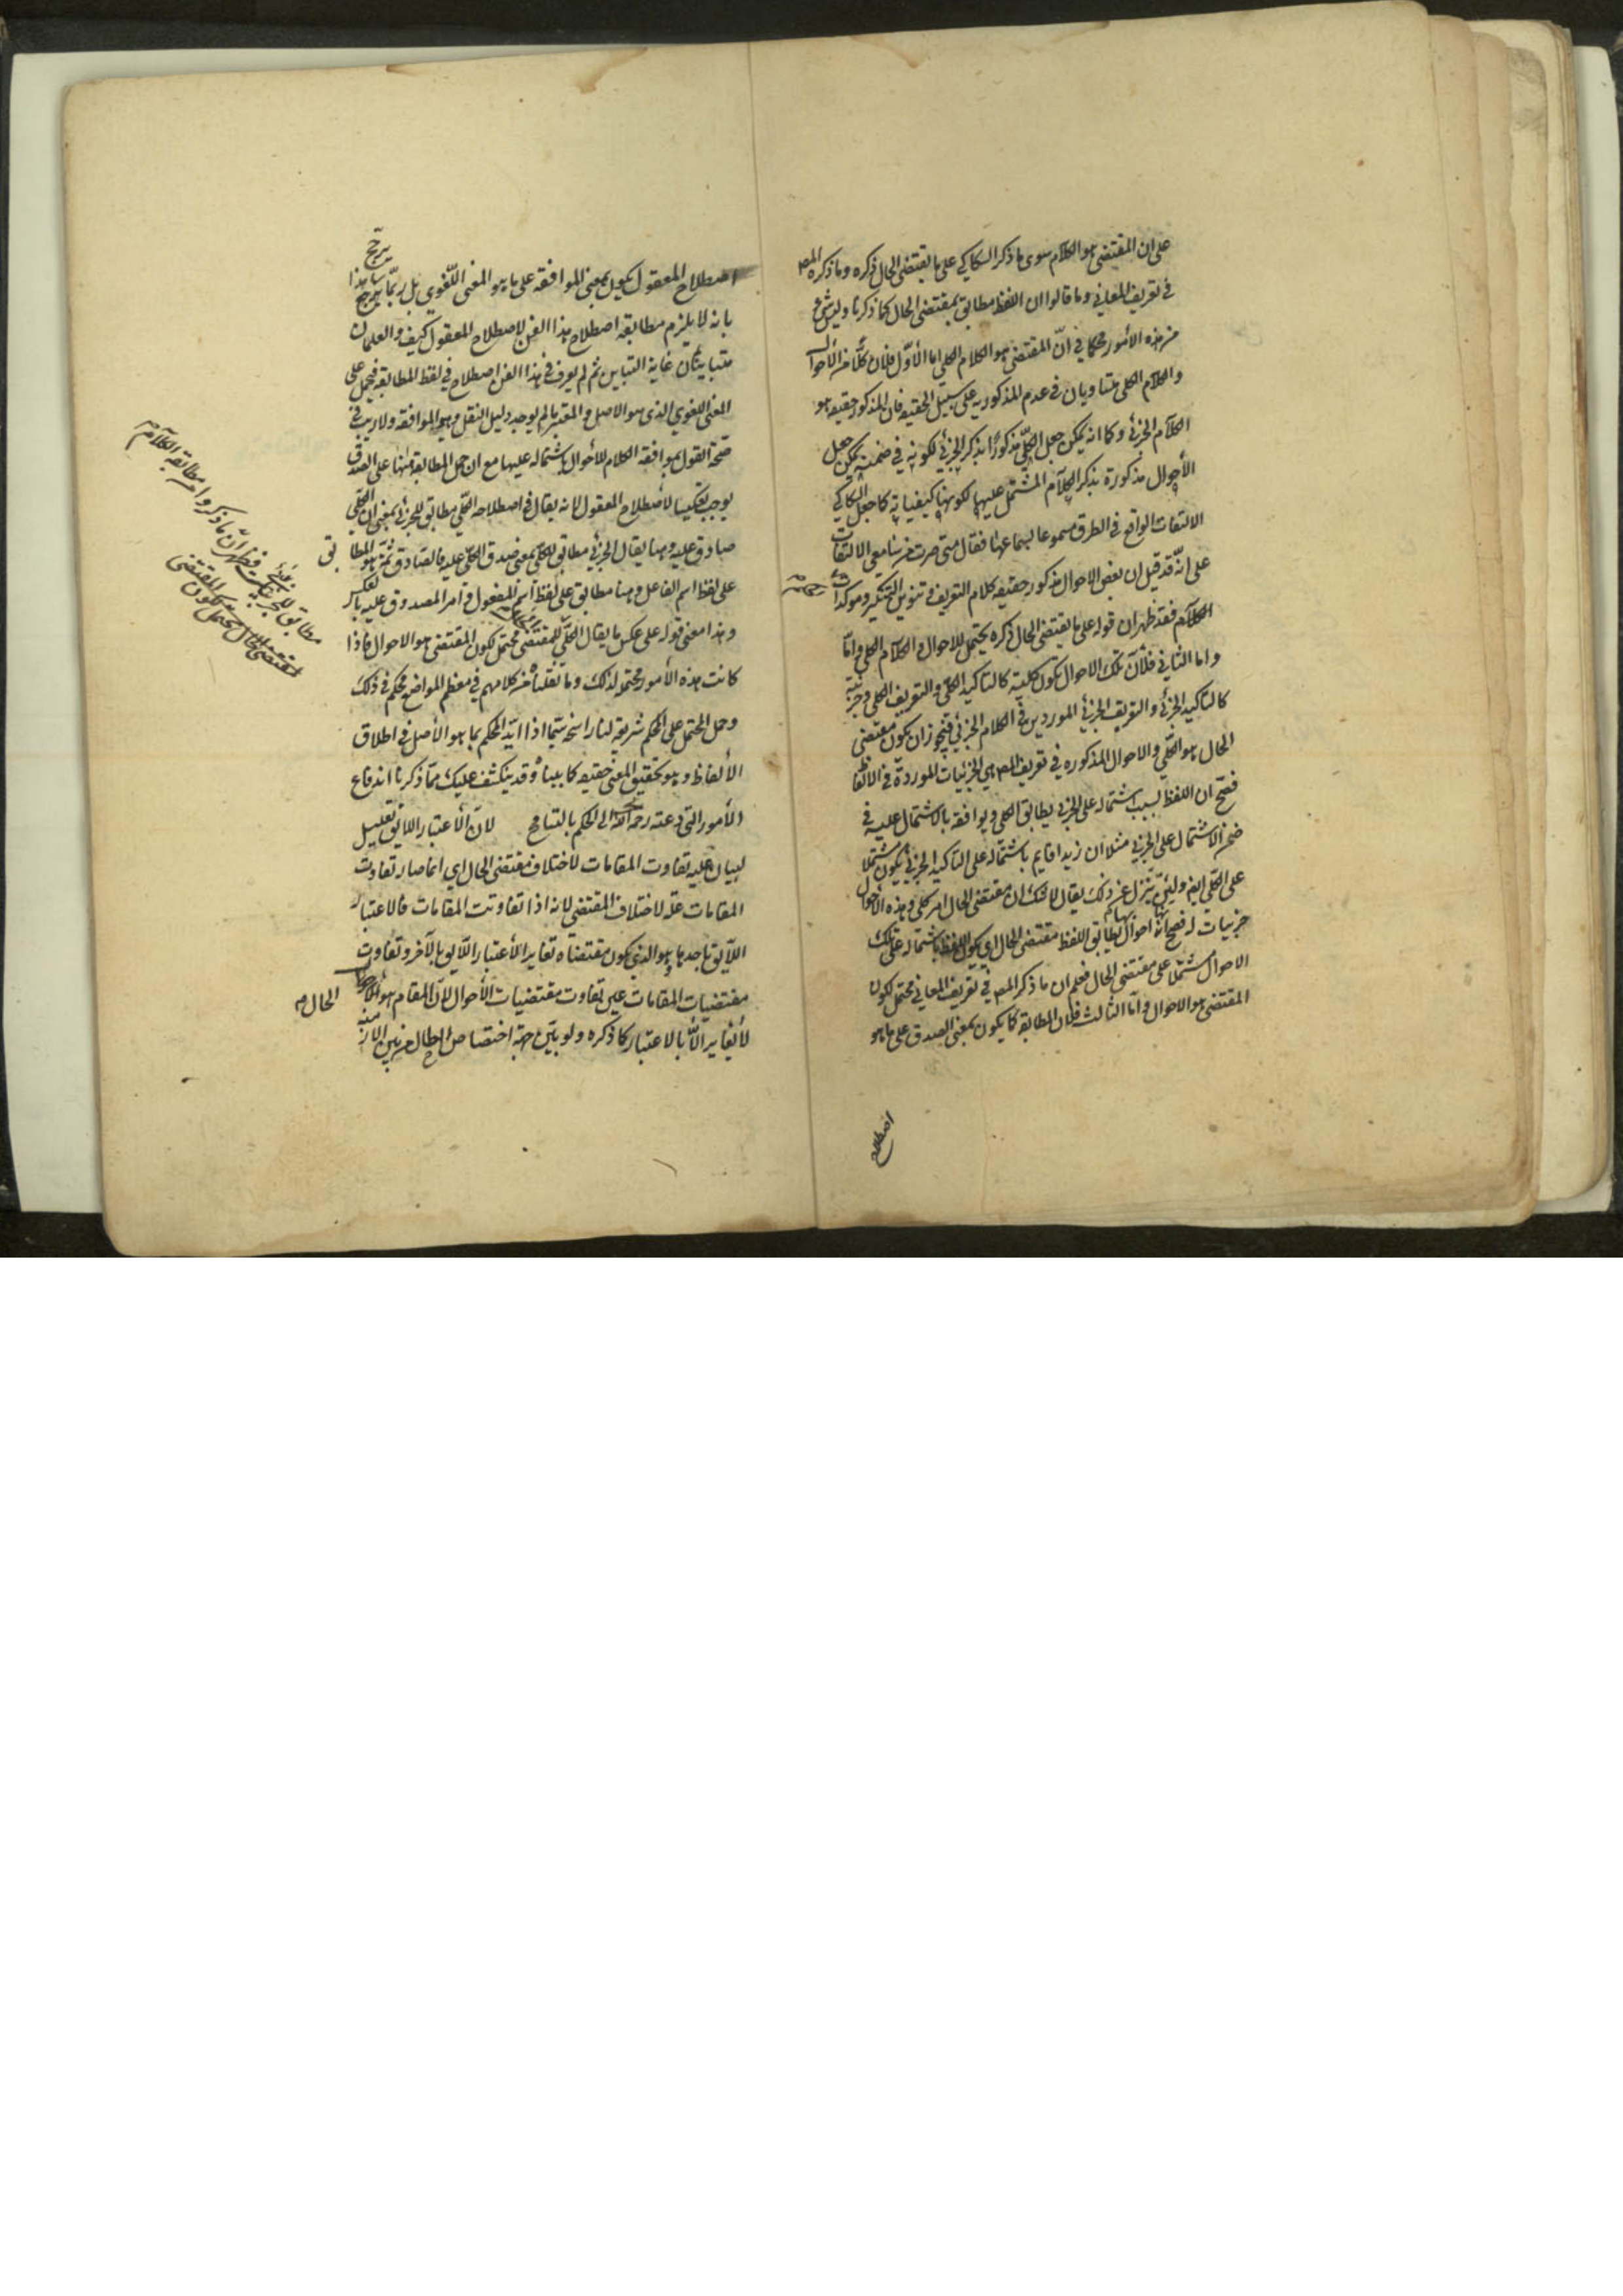 على ان المقتضى هو الكلام سوى ما ذكر السكاكي على ما يقتضى الحال ذكره وما ذكره المصـ
في تعريف المعاني وما قالوا ان اللفظ مطابق بمقتضى الحال كما ذكرنا وليس شئ
من هذه الأمور محكما في انّ المقتضى هو الكلام الكلي اما الأوّل فلان كلًّا من الأحوال
والكلام الكلى متساويان في عدم المذكوريه على سبيل الحقيقه فان المذكور حقيقه هو
الكلام الجزئى وكما انه يمكن جعل الكلّي مذكورًا بذكر الجزئي لكونه في ضمنه يمكن جعل
الأحوال مذكورة بذكر الكلام المشتمل عليها لكونها كيفياته كما جعل السكاكي
الالتفات الواقع في الطرق مسموعا لسماعها فقال متى صرت من سامعى الالتفات
على انّه قد قيل ان بعض الاحوال مذكور حقيقه كلام التعريف وتنوين التنكير وموكدات
الكلام فقد ظهر ان قوله على ما يقتضى الحال ذكره يحتمل للاحوال والكلام الكلي وامّا
واما الثاني فلأنّ تلك الاحوال تكون كلية كالتاكيد الكلّي والتعريف الكلي وجزئية
كالتاكيد الجزئي والتعريف الجزئي الموردين في الكلام الجزئي فيجوز ان يكون مقتضى
الحال هو الكلّي والاحوال المذكوره في تعريف المصـ هي الجزئيات الموردة في الالفاظ
فصحّ ان اللفظ بسبب اشتماله على الجزئي يطابق الكلي ويوافقه بالاشتمال عليه في
ضمن الاشتمال على الجزئي مثلا ان زيدا قايم باشتماله على التاكيد الجزئي يكون مشتملا
على الكلّي ايضـ ولئن تنزل عن ذلك يقال لا شك ان مقتضى الحال امر كلي وهذه الأحوال
جزئيات له فصح انه احوال بها يطابق اللفظ مقتضى الحال اي يكون اللفظ باشتماله على تلك
الاحوال مشتملا على مقتضى الحال فعلم ان ما ذكر المصـ في تعريف المعاني محتمل لكون
المقتضى هو الاحوال وامّا الثالث فلان المطابقه كما يكون بمعنى الصدق على ما هو
اصطلاح
اصطلاح المعقول يكون بمعنى الموافقه على ما هو المعنى اللّغوي بل ربّما يرجّح هذا
يرجّح
بانه لا يلزم مطابقه اصطلاح هذا الفن لاصطلاح المعقول كيف والعلمان
متباينان غاية التباين ثم لم يعرف في هذا الفن اصطلاح في لفظ المطابقه فيحمل على
المعنى اللغوي الذى هو الاصل والمعتبر ما لم يوجد دليل النقل وهو الموافقه ولا ريب في
صحّة القول بموافقه الكلام للأحوال باشتماله عليها مع ان حمل المطابقه هنا على الصدق
يوجب تعكيسا لأصطلاح المعقول لانه يقال في اصطلاحه الكلّي مطابق للجزئي بمعنى ان الكلّي
صادق عليه وهنا يقال الجزئي مطابق للكلّي بمعنى صدق الكلّي عليه فالصادق ثمّة هو المطابق
على لفظ اسم الفاعل وهنا مطابق على لفظ اسم المفعول وامر المصدوق عليه بالعكس
وهذا معنى قوله على عكس ما يقال الكلّي للمقتضى محتمل لكون المقتضى هو الاحوال فاذا
كانت هذه الأمور محتمله لذلك وما نقلناه من كلامهم في معظم المواضع محكم في ذلك
وحمل المحتمل على المحكم شريعة لنا راسخه سيّما اذا ايّد المحكم بما هو الأصل في اطلاق
الألفاظ وهو تحقيق المعنى حقيقه كما بيناه وقد ينكشف عليك ممّا ذكرنا اندفاع
الأمور التي دعته رحمه اللّه الى الحكم بالتسامح لانّ الأعتبار اللائق تعليل
لبيان علية تفاوت المقامات لاختلاف مقتضى الحال اي انما صار تفاوت
المقامات علّة لاختلاف المقتضى لانه اذا تفاوتت المقامات فالاعتبار
اللّايق باحدها وهو الذي يكون مقتضاه تغاير الأعتبار اللّايق بالآخر وتفاوت
مقتضيات المقامات عين تفاوت مقتضيات الأحوال لأنّ المقام هو الحال
لا تغاير الّا بالاعتبار كما ذكره ولو بيّن جهة اختصاص الحال من بين الازمنه
مطابق للجزئي فظهر انّ ما ذكروا من مطابقه الكلام
لمقتضى الحال محتمل لكون المقتضى